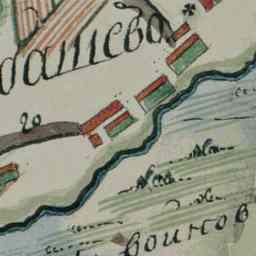 дашева
20
воинов